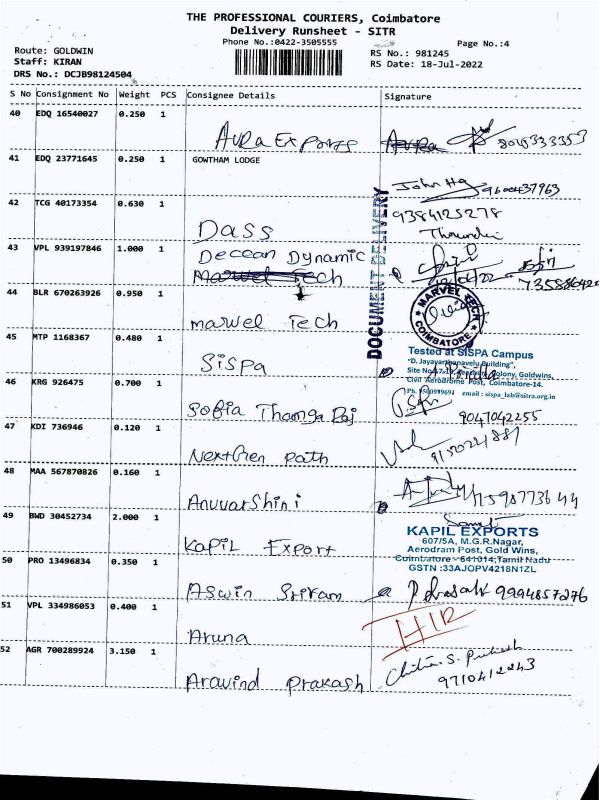 THE PROFESSIONAL COURIERS, Coimbatore
Delivery Runsheet - SITR
Phone No.:0422-3505555
Page No.:4
Route: GOLDWIN
RS No.: 981245
Staff: KIRAN
RS Date: 18-Jul-2022
DRS No.: DCJB98124504
S No Consignment No Weight PCS Consignee Details Signature
40 EDQ 16540027 0.250 1
Avra Exports Avra 8015333353
41 EDQ 23771645 0.250 1 GOWTHAM LODGE
John
42 TCG 40173354 0.630 1
9384125278
Dass
43 VPL 939197846 1.000 1 Deccan Dynamic
Marwel Tech
DOCUMENT DELIVERY
44 BLR 670263926 0.950 1
marwel Tech
MARVEL TECH
COIMBATORE
45 MTP 1168367 0.480 1
SiSPa
Tested at SISPA Campus
Colony, Goldwins,
Civil Aerodrome Post, Coimbatore-14.
email : sispa_lab@sitra.org.in
46 KRG 926475 0.700 1
Sofia Thamga Raj 9047042255
47 KDI 736946 0.120 1
NextGen path
48 MAA 567870826 0.160 1
AnuvarShini
49 BWD 30452734 2.000 1
Kapil Export
KAPIL EXPORTS
607/5A, M.G.R.Nagar,
Aerodram Post, Gold Wins,
Coimbatore - 641014, Tamil Nadu
GSTN :33AJOPV4218N1ZL
50 PRO 13496834 0.350 1
Aswin Sriram 9994857276
51 VPL 334986053 0.400 1
Aruna
52 AGR 700289924 3.150 1
Aravind prakash 9710412243